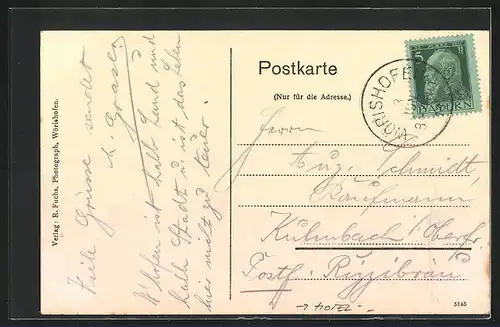 Verlag: R. Fuchs, Photograph, Wörishofen.
Viele Grüsse sendet
W'hofen ist halb Land und
halb Stadt u. ist das Leben
hier nicht zu teuer.
Postkarte
(Nur für die Adresse.)
WÖRISHOFEN
5
BAYERN
Herrn
Aug. Schmidt,
Kaufmann
Kulmbach Oberfr.
Postf. Rizzibräu
→ Hotel
5165